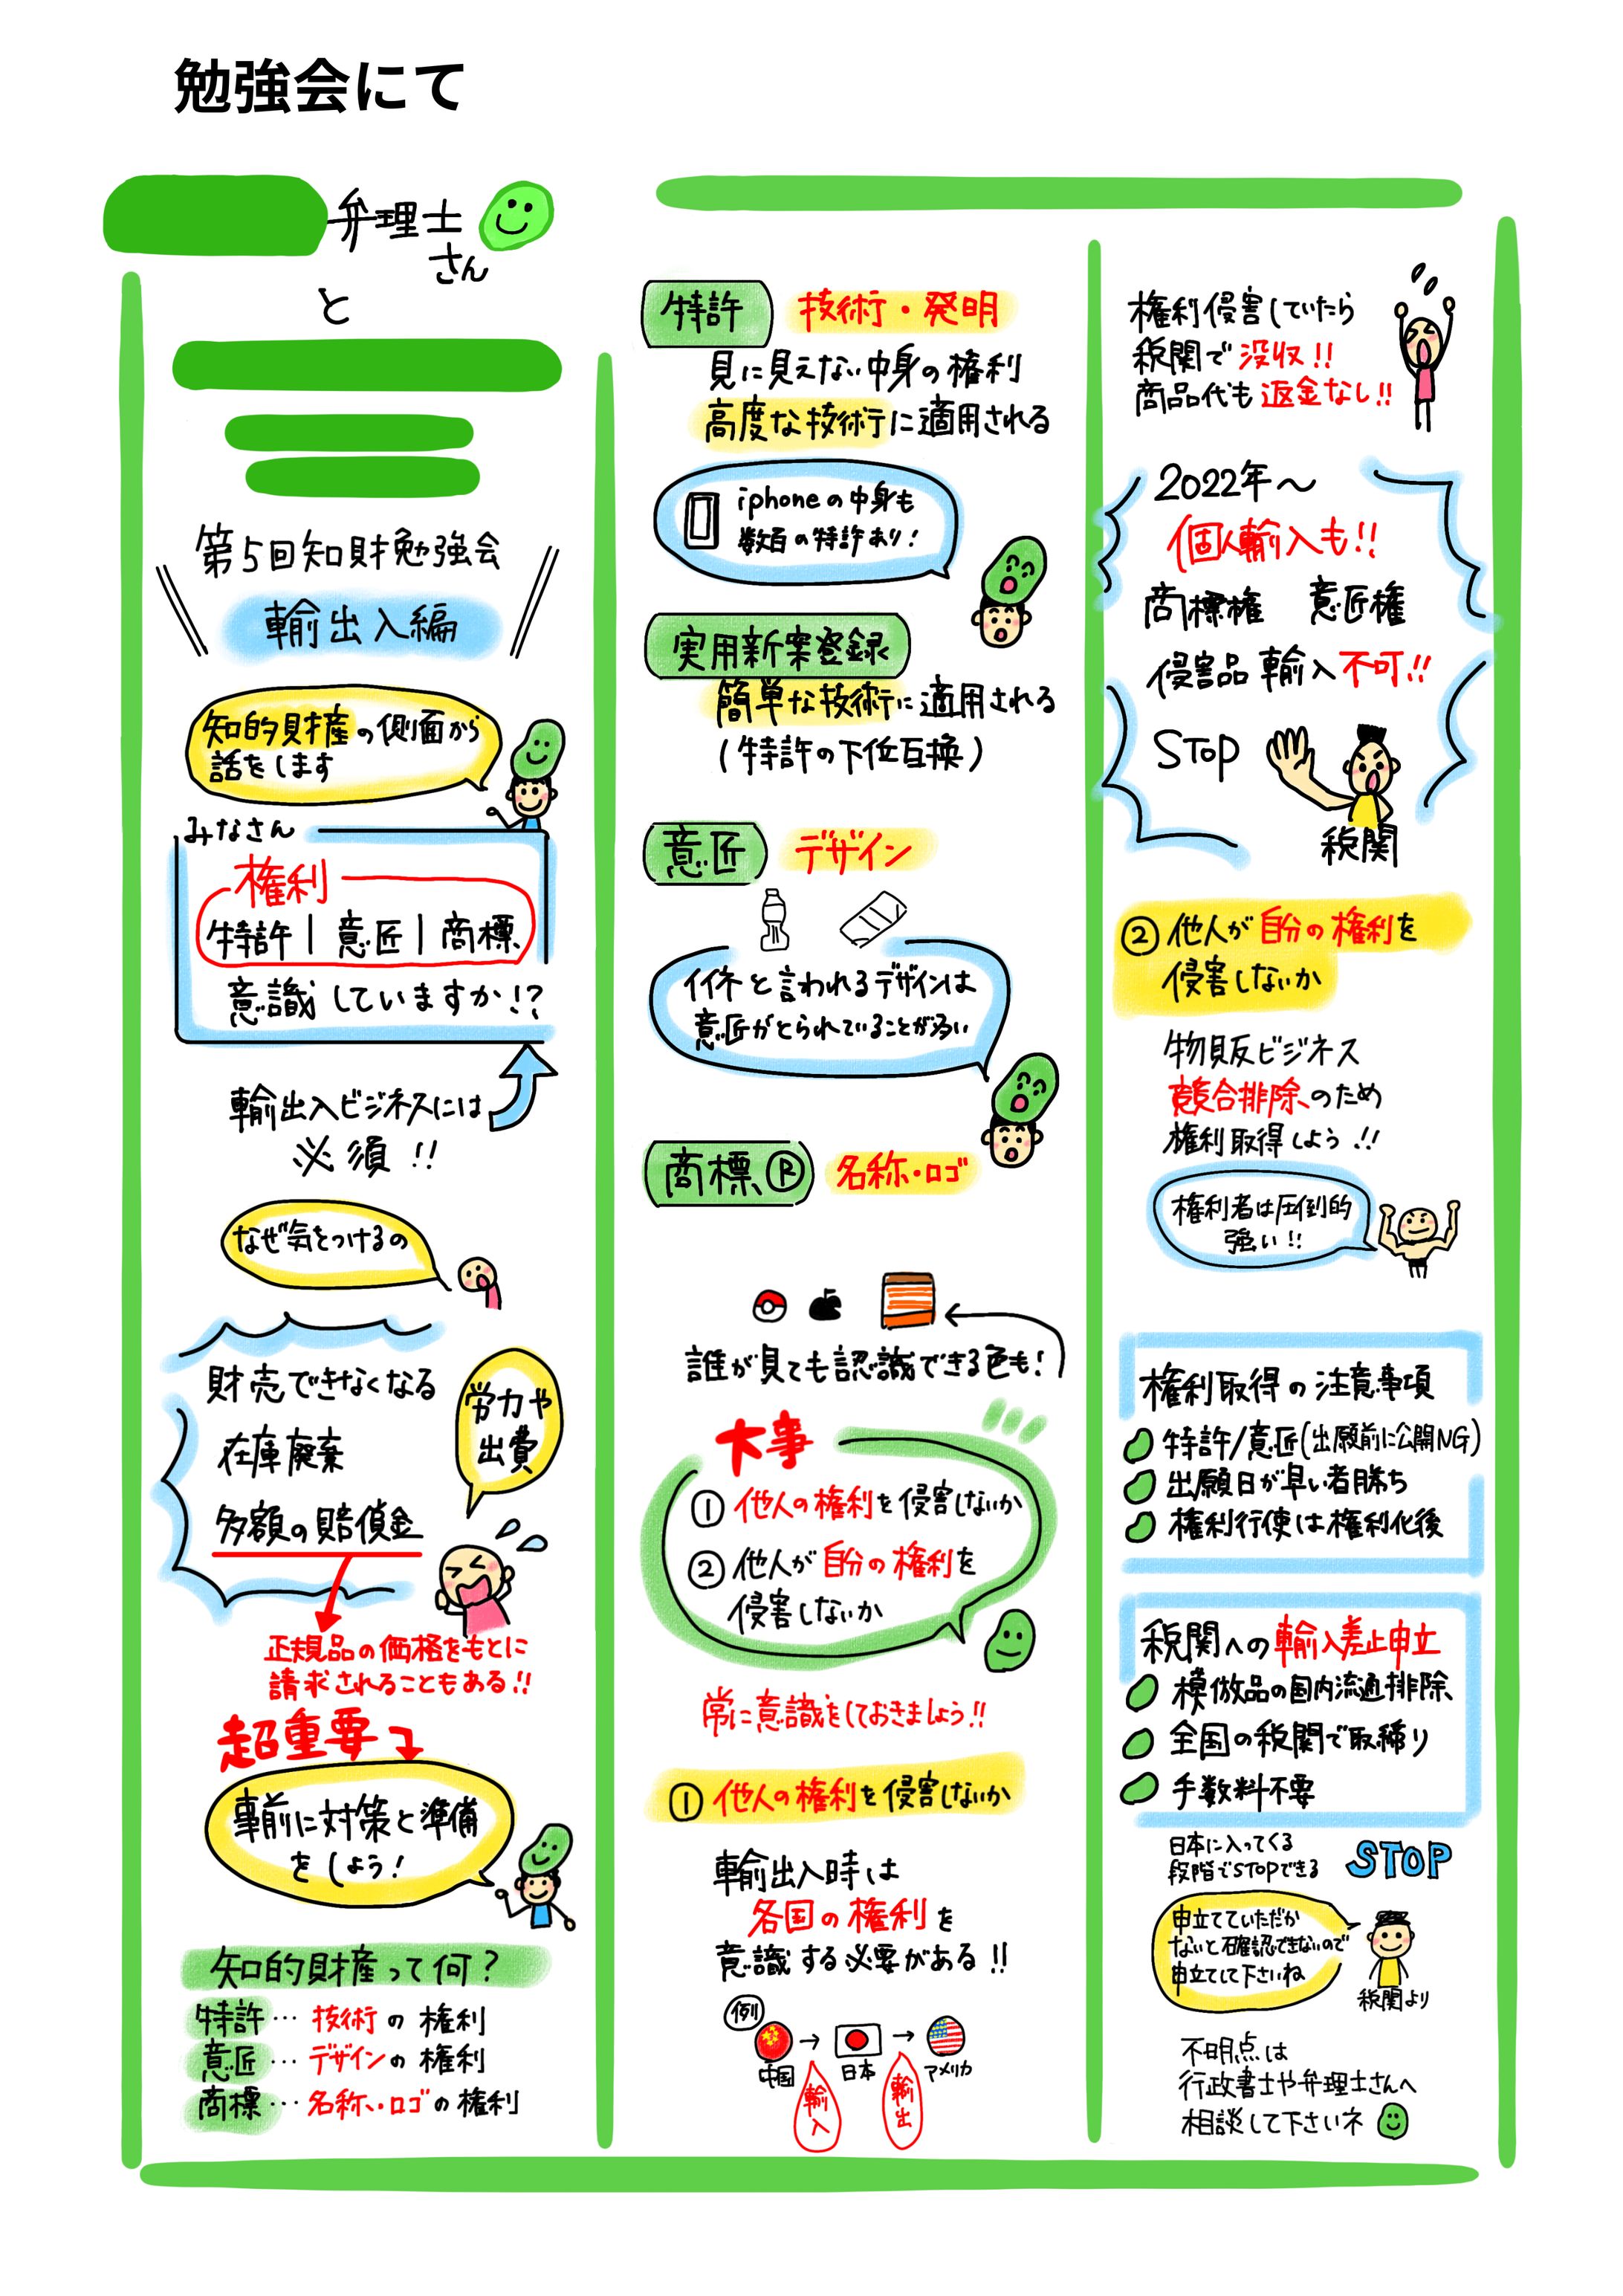 勉強会にて
弁理士
さん
と
第5回知財勉強会
輸出入編
知的財産の側面から
話をします
みなさん
権利
特許|意匠|商標
意識していますか!?
輸出入ビジネスには
必須!!
なぜ気をつけるの
財売できなくなる
在庫廃棄
多額の賠償金
労力や
出費
正規品の価格をもとに
請求されることもある!!
超重要
事前に対策と準備
をしよう!
知的財産って何?
特許…技術の権利
意匠…デザインの権利
商標…名称・ロゴの権利
特許 技術・発明
見に見えない中身の権利
高度な技術に適用される
iphoneの中身も
数百の特許あり!
実用新案登録
簡単な技術に適用される
(特許の下位互換)
意匠 デザイン
イイネと言われるデザインは
意匠がとられていることが多い
商標® 名称・ロゴ
誰が見ても認識できる色も!
大事
①他人の権利を侵害しないか
②他人が自分の権利を
侵害しないか
常に意識をしておきましょう!!
①他人の権利を侵害しないか
輸出入時は
各国の権利を
意識する必要がある!!
例
中国→日本→アメリカ
輸入
輸出
権利侵害していたら
税関で没収!!
商品代も返金なし!!
2022年〜
個人輸入も!!
商標権 意匠権
侵害品輸入不可!!
STOP
税関
②他人が自分の権利を
侵害しないか
物販ビジネス
競合排除のため
権利取得しよう!!
権利者は圧倒的
強い!!
権利取得の注意事項
特許/意匠(出願前に公開NG)
出願日が早い者勝ち
権利行使は権利化後
税関への輸入差止申立
模倣品の国内流通排除
全国の税関で取締り
手数料不要
日本に入ってくる
段階でSTOPできる
STOP
申立てていただか
ないと確認できないので
申立てして下さいね
税関より
不明点は
行政書士や弁理士さんへ
相談して下さいネ